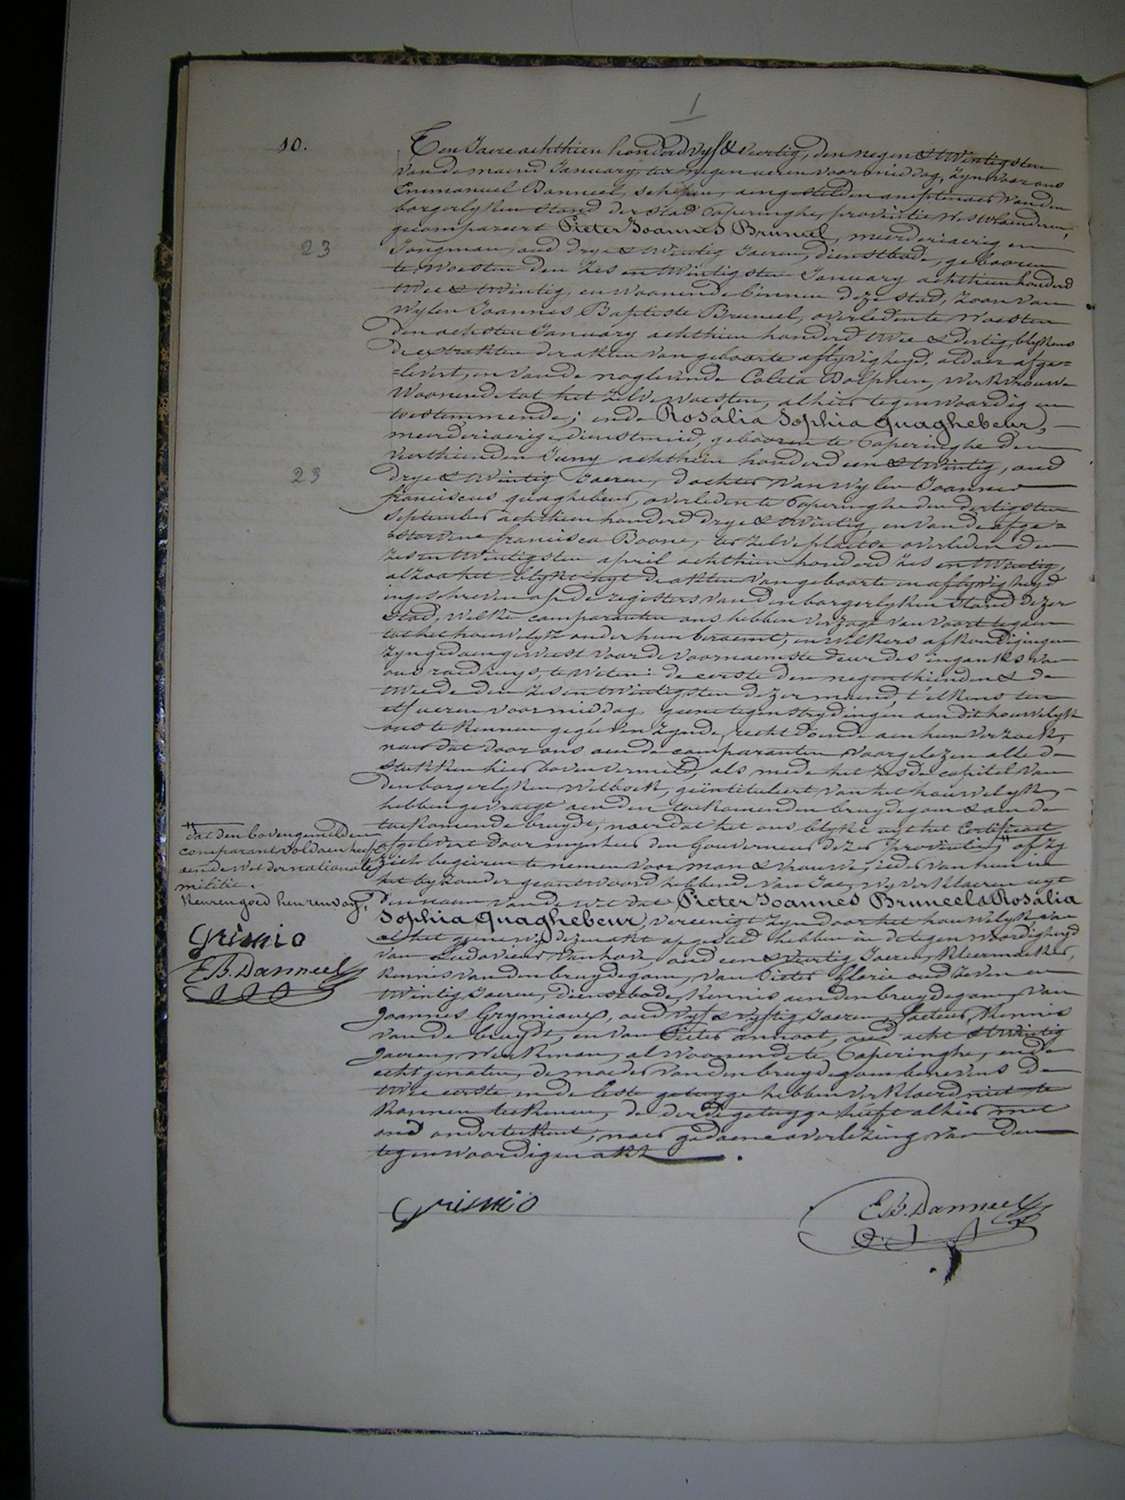 1
10.
Ten Jaere achthien honderd Vyf & Veertig, den negen & twintigsten
van de maend January, ten negen ueren voormiddag, Zyn voor ons
Emmanuel Danneel, schepen, aengestelden amptenaer van den
borgerlyken stand der Stad Poperinghe, provintie Westvlaenderen,
gecompareert Pieter Joannes Bruneel, meerderiaerig en
23
Jongman, oud drye & twintig Jaeren, dienstbode, gebooren
te Woesten den Zes en twintigsten January achthien honderd
twee & twintig, en woonende binnen deze stad, Zoon van
wylen Joannes Baptiste Bruneel, overleden te Woesten
den achsten January achthien honderd twee & dertig, blykens
de extrakten der akten van geboorte & aflyvigheyd, aldaer afge=
=levert, en van de noglevende Coleta Dolphen, werkvrouwe
woonende tot het zelve Woesten, alhier tegenwoordig en
toestemmende; ende Rosalia Sophia Quaghebeur, —
meerderiaerige dienstmeid, gebooren te Poperinghe den
Veerthienden Juny achthien honderd een & twintig, oud
23
drye & twintig Jaeren, dochter van wylen Joannes
franciscus Quaghebeur, overleden te Poperinghe den dertigsten
September achthien honderd drye & twintig, en van de afge=
=storvene francisca Boone, ter zelve plaetse overleden den
Zes en twintigsten april achthien honderd Zes en twintig,
alzoo het blykt uyt de akten van geboorte en aflyvigheyd
ingeschreven op de registers van den borgerlyken stand dezer
Stad, welke comparanten ons hebben verzogt van voort te gaen
tot het houwelyk onder hun beraemt, en welkers afkondigingen
Zyn gedaen geweest voor de voornaemste deur des ingangs van
ons raedhuys, te weten: de eerste den negenthienden & de
tweede den Zes en twintigsten dezer maend t'elkens ten
elf ueren voormiddag. Geene tegenstrydingen aen dit houwelyk
ons te kennen gegeven zynde, recht doende aen hun verzoek,
naer dat door ons aen de comparanten voorgelezen alle de
stukken hier boven vermeld, als mede het Zesde capitel van
den borgerlyken Wetboek, geïntituleert van het houwelyk, —
hebben gevraegt aen den toekomenden bruydegom & aen de
toekomende bruydt, naer dat het ons blykt uyt het Certificaet
afgelevert door mynheer den Gouverneur dezer Provintie, " of zy
zich begeeren te nemen voor man & vrouwe, ieder van hun in
het byzonder geantwoord hebbende van Jae, wy verklaeren uyt
den naem van de wet dat Pieter Joannes Bruneel & Rosalia
Sophia Quaghebeur, vereenigt zyn door het houwelyk, van
al het gene wy deze akt opgesteld hebben in de tegenwoordigheyd
van Ludovicus Vanhove, oud een & veertig Jaeren, Kleermaeker,
Kennis van den bruydegom, van Pieter Florie oud Zeven en
twintig Jaeren, dienstbode, Kennis aen den bruydegom, van
Joannes Grymiaux, oud vyf & vyftig Jaeren, facteur, Kennis
van de bruydt, en van Pieter annoot, oud acht & twintig
Jaeren, werkman, al woonende te Poperinghe, ende
echtgenaten, de moeder van den bruydegom benevens de
twee eerste en de leste getuyge hebben verklaerd niet te
konnen teekenen, de derde getuyge heeft alhier met
ons onderteekent, naer gedaene overlezing van den
tegenwoordigen akt.
" dat den bovengemelden
comparant voldaen heeft
aen de Wet der nationale
militie.
Keuren goed hun renvoy,
Grimio
E.B. Danneel
Grimio
E.B. Danneel